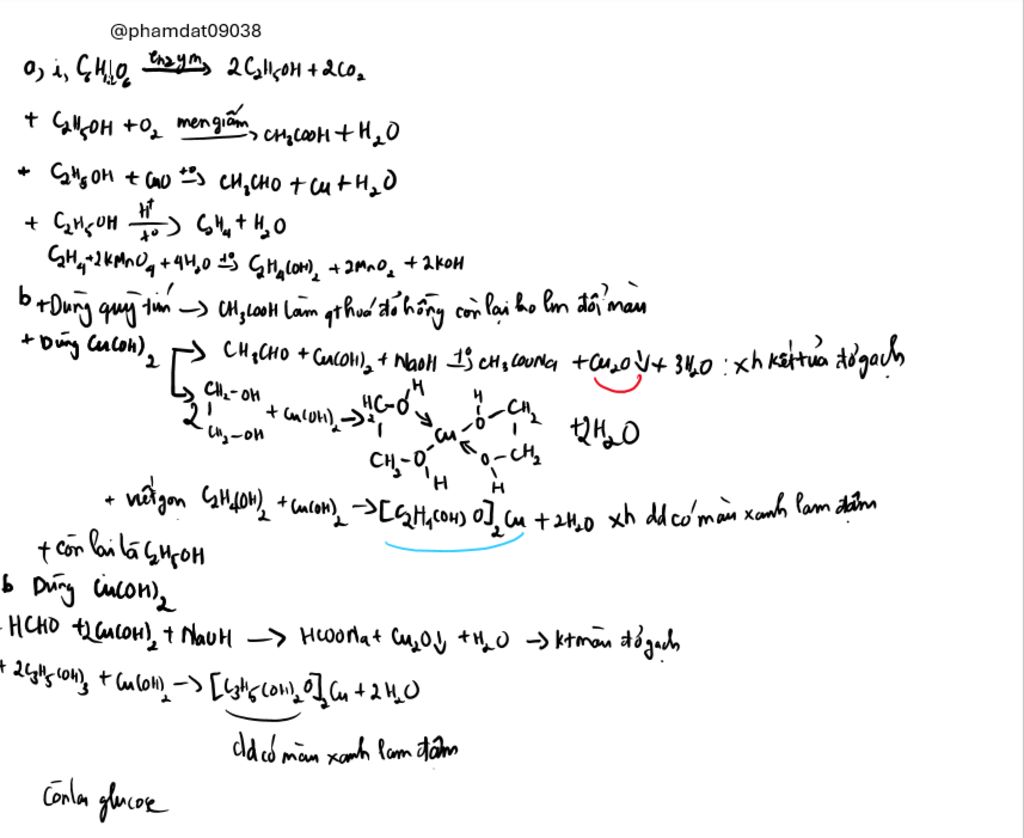 @phamdat09038
a, i, C6H12O6 enzym → 2C2H5OH + 2CO2
+ C2H5OH + O2 men giấm → CH3COOH + H2O
+ C2H5OH + CuO t° → CH3CHO + Cu + H2O
+ C2H5OH H+ t° → C2H4 + H2O
C2H4 + 2KMnO4 + 4H2O t° → C2H4(OH)2 + 2MnO2 + 2KOH
b + Dùng quỳ tím → CH3COOH làm qt hoá đỏ hồng còn lại ko lm đổi màu
+ Dùng Cu(OH)2 → CH3CHO + Cu(OH)2 + NaOH t° → CH3COONa + Cu2O↓ + 3H2O : xh kết tủa đỏ gạch
2 CH2-OH CH2-OH + Cu(OH)2 → H2C-O H CH2-O H Cu H O-CH2 O-CH2 H +2H2O
+ viết gọn C2H4(OH)2 + Cu(OH)2 → [C2H4(OH)O]2Cu + 2H2O xh dd có màu xanh lam đậm
+ còn lại là C2H5OH
b Dùng Cu(OH)2
HCHO + 2Cu(OH)2 + NaOH → HCOONa + Cu2O↓ + H2O → kt màu đỏ gạch
+ 2C3H5(OH)3 + Cu(OH)2 → [C3H5(OH)2O]2Cu + 2H2O
dd có màu xanh lam đậm
còn lại glucose